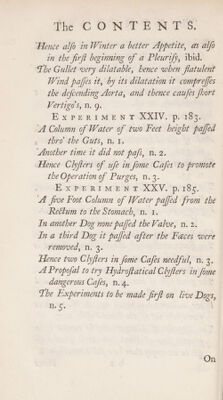 The CONTENTS.
Hence also in Winter a better Appetite, as also
in the first beginning of a Pleurisy, ibid.
The Gullet very dilatable, hence when flatulent
Wind passes it, by its dilatation it compresses
the descending Aorta, and thence causes short
Vertigo's, n. 9.
EXPERIMENT XXIV. p. 183.
A Column of Water of two Feet height passed
thro' the Guts, n. 1.
Another time it did not pass, n. 2.
Hence Clysters of use in some Cases to promote
the Operation of Purges, n. 3.
EXPERIMENT XXV. p. 185.
A five Foot Column of Water passed from the
Rectum to the Stomach, n. 1.
In another Dog none passed the Valve, n. 2.
In a third Dog it passed after the Fæces were
removed, n. 3.
Hence two Clysters in some Cases needful, n. 3.
A Proposal to try Hydrostatical Clysters in some
dangerous Cases, n. 4.
The Experiments to be made first on live Dogs,
n. 5.
On